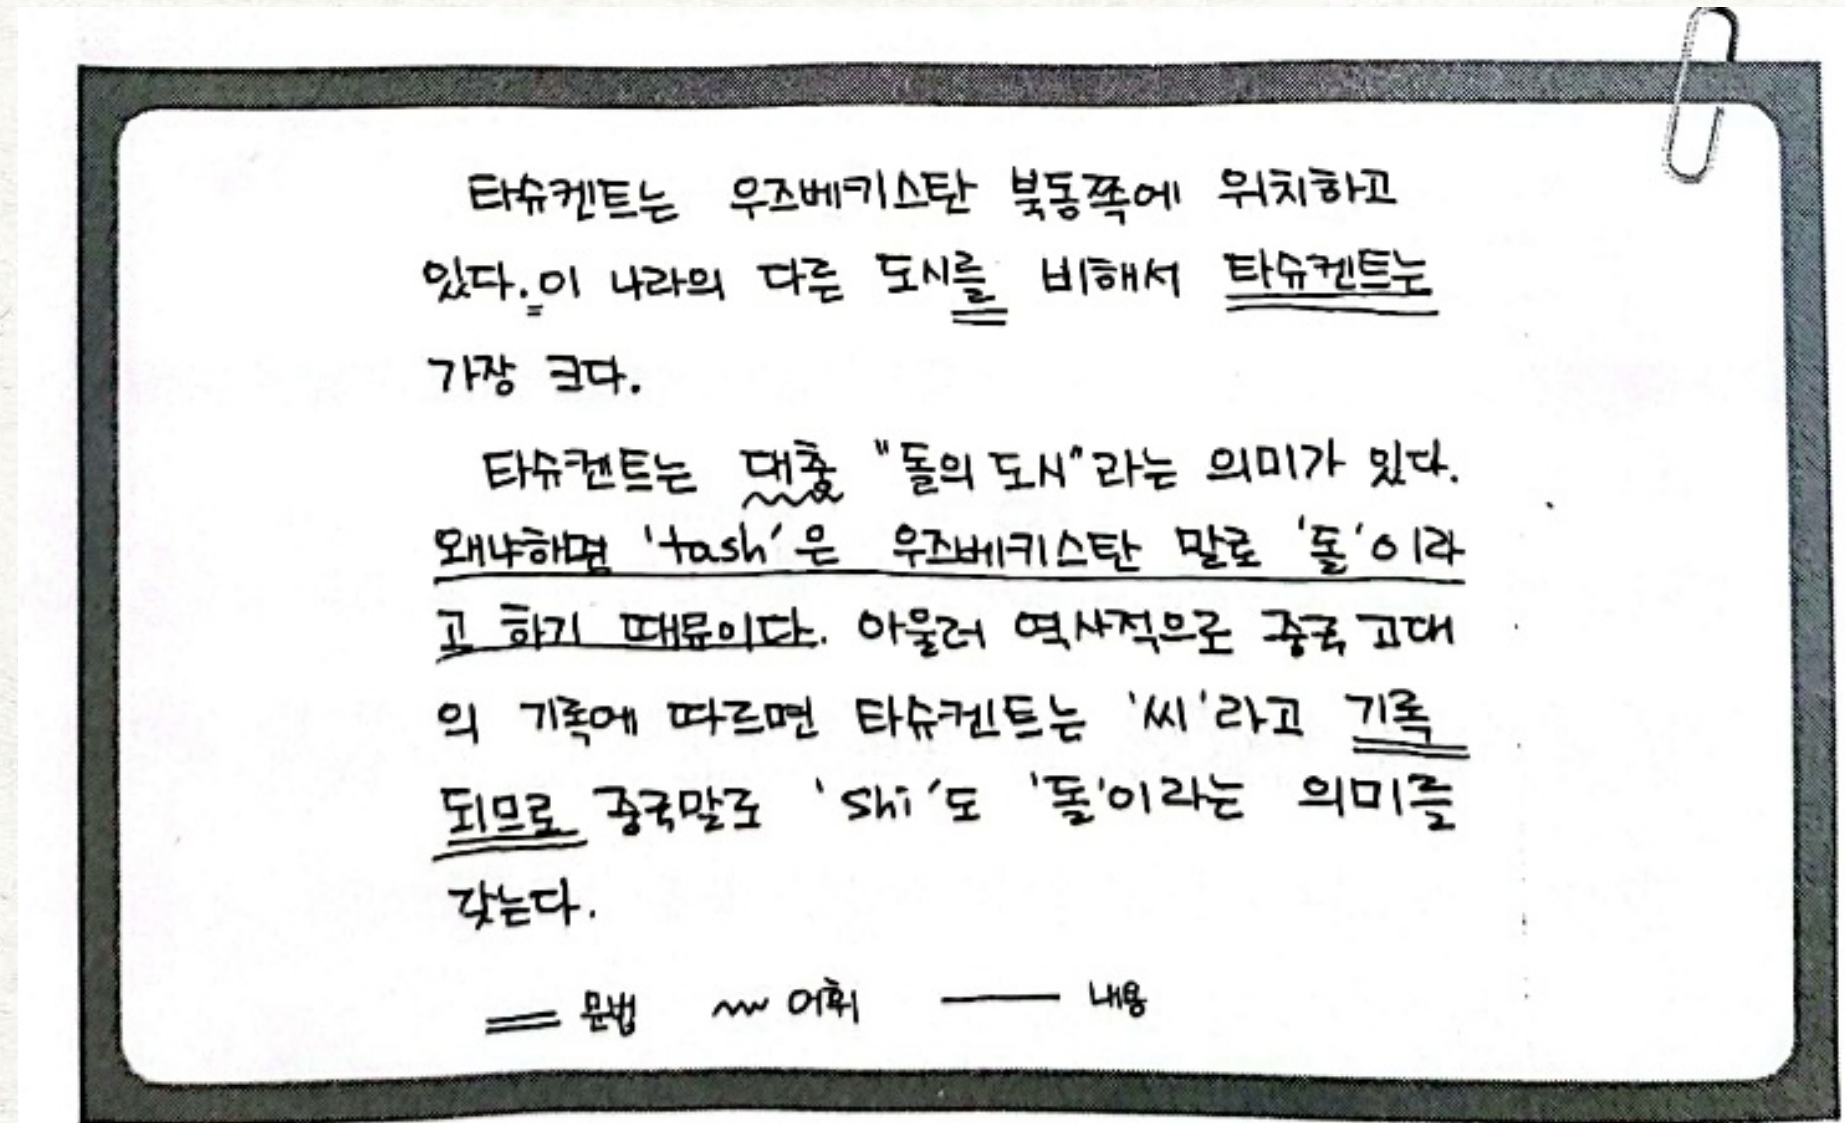 타슈켄트는 우즈베키스탄 북동쪽에 위치하고
있다. 이 나라의 다른 도시를 비해서 타슈켄트는
가장 크다.
타슈켄트는 대충 "돌의 도시"라는 의미가 있다.
왜냐하면 'tash'은 우즈베키스탄 말로 '돌'이라
고 하기 때문이다. 아울러 역사적으로 중국 고대
의 기록에 따르면 타슈켄트는 '씨'라고 기록
되므로 중국말로 'shi'도 '돌'이라는 의미를
갖는다.
문법 어휘 내용